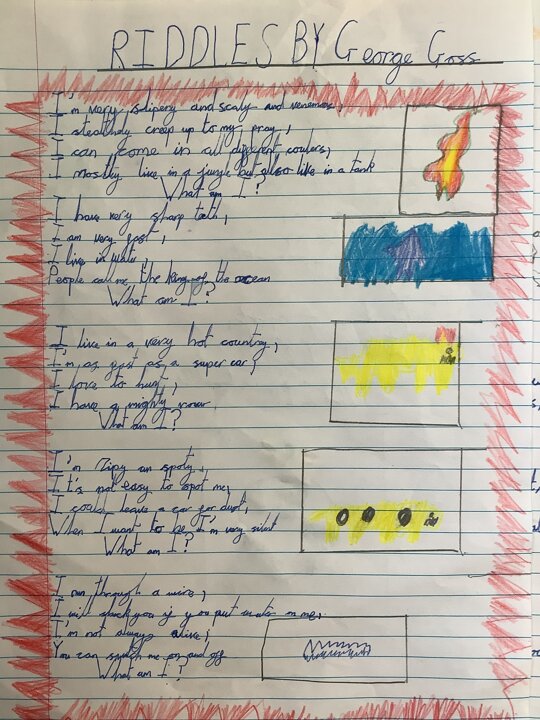 RIDDLES BY George Goss
I'm very slipery and scaly and venemous,
I stealthaly creep up to my pray,
I can come in all different coulers,
I mostley live in a jungle but also like in a tank
What am I?
I have very sharp teeth,
I am very fast,
I live in water,
People call me the king of the ocean
What am I?
I live in a very hot country,
I'm as fast as a super car,
I love to hunt,
I have a mighty rower
What am I?
I'm zipy an spoty,
It's not easy to spot me,
I could leave a car for dust,
When I want to be I'm very silent
What am I?
I run through a wire,
I will shock you if you put water on me,
I'm not always alive,
You can switch me on and off
What am I?